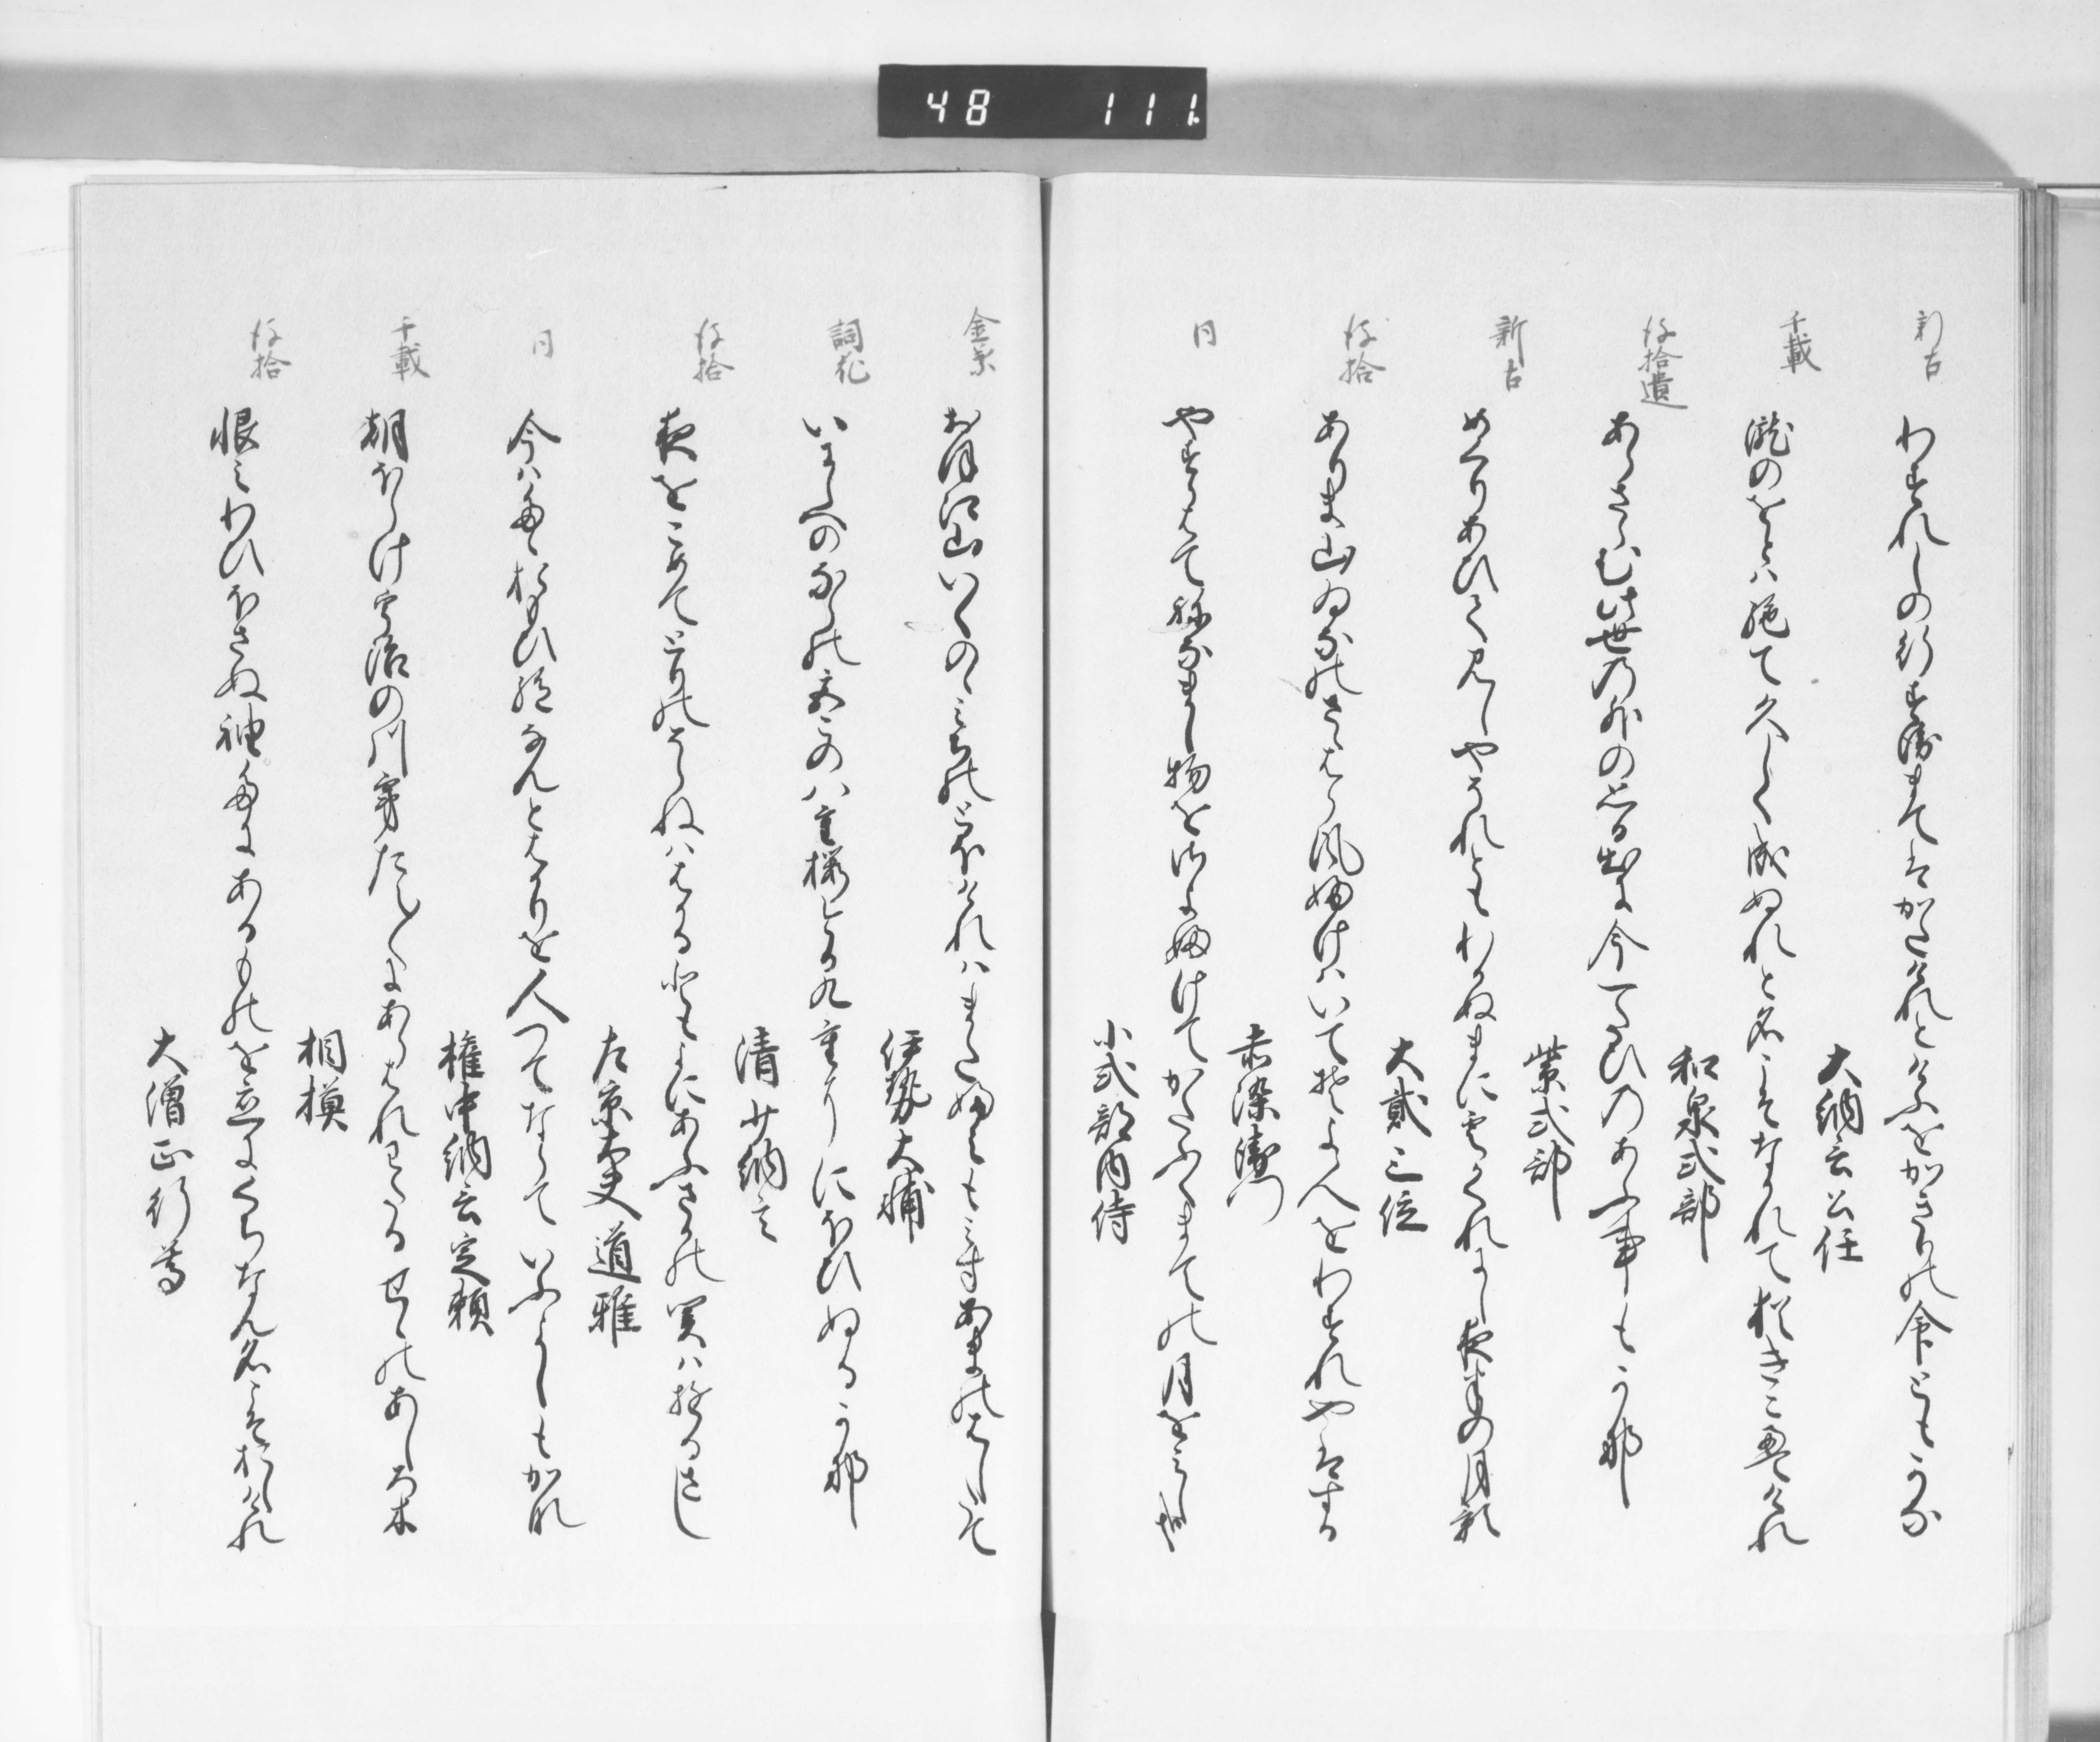 48 111
新古
わすれしの行すゑまてはかたけれとけふをかきりの命ともかな
大納言公任
千載
瀧のをとは絶て久しく成ぬれと名こそなかれて猶きこえけれ
和泉式部
後拾遺
あらさらむ此世乃外の思ひ出に今一たひのあふ事もかな
紫式部
新古
めくりあひて見しやそれともわかぬまに雲かくれにし夜半の月影
大貳三位
後拾
ありま山ゐなのさゝはら風ふけはいてそよ人をわすれやはする
赤染衛門
同
やすらはてねなまし物をさよふけてかたふくまての月をみし哉
小式部内侍
金葉
おほ江山いくのゝみちのとをけれはまたふみもみすあまのはしたて
伊勢大輔
詞花
いにしへのならの京の八重櫻けふ九重にゝほひぬるか那
清少納言
後拾
夜をこめてとりのそらねははかる共よにあふさかの関はゆるさし
左京大夫道雅
同
今はたゝおもひ絶なんとはかりを人つてならていふよしもかな
権中納言定頼
千載
朝ほらけ宇治の川霧たえ〳〵にあらはれわたるせゝのあしろ木
相模
後拾
恨みわひほさぬ袖たにあるものを恋にくちなん名こそおしけれ
大僧正行尊